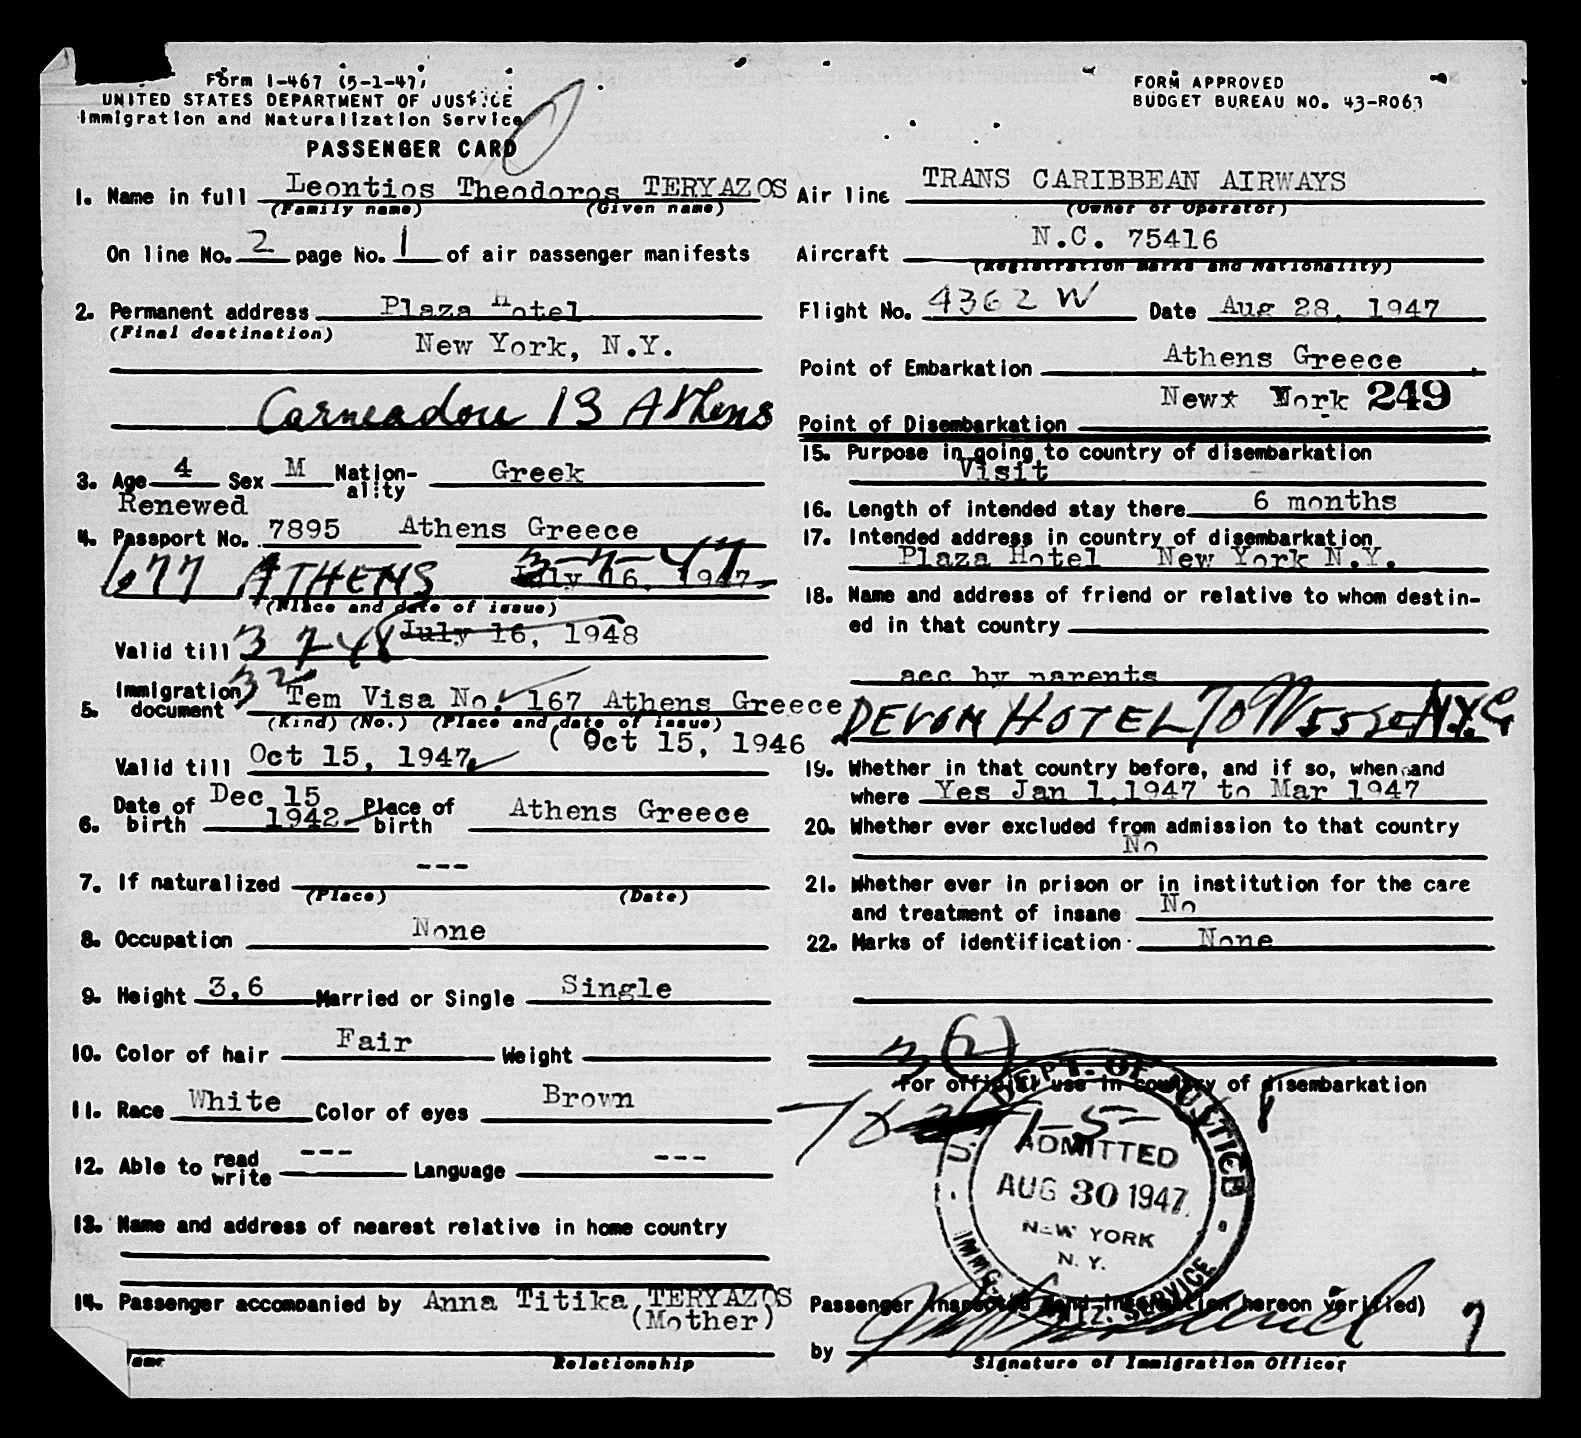 Form I-467 (5-1-47)
UNITED STATES DEPARTMENT OF JUSTICE
Immigration and Naturalization Service
PASSENGER CARD
1. Name in full Leontios Theodoros TERYAZOS
(Family name) (Given name)
On line No. 2 page No. 1 of air passenger manifests
2. Permanent address Plaza Hotel
(Final destination) New York, N.Y.
Carneadou 13 Athens
3. Age 4 Sex M Nation-ality Greek
Renewed
4. Passport No. 7895 Athens Greece
677 ATHENS 3-7-47 July 16, 1947
(Place and date of issue)
Valid till 3 7-48 July 16, 1948
5. Immigration document 32 Tem Visa No. 167 Athens Greece
(Kind) (No.) (Place and date of issue)
( Oct 15, 1946
Valid till Oct 15, 1947
6. Date of birth Dec 15 1942 Place of birth Athens Greece
7. If naturalized ---
(Place) (Date)
8. Occupation None
9. Height 3,6 Married or Single Single
10. Color of hair Fair Weight
11. Race White Color of eyes Brown
12. Able to read write --- Language ---
13. Name and address of nearest relative in home country
14. Passenger accompanied by Anna Titika TERYAZOS
(Mother)
Name Relationship
FORM APPROVED
BUDGET BUREAU NO. 43-R063
Air line TRANS CARIBBEAN AIRWAYS
(Owner or Operator)
Aircraft N.C. 75416
(Registration Marks and Nationality)
Flight No. 4362 W Date Aug 28, 1947
Point of Embarkation Athens Greece
Newx York 249
Point of Disembarkation
15. Purpose in going to country of disembarkation
Visit
16. Length of intended stay there 6 months
17. Intended address in country of disembarkation
Plaza Hotel New York N.Y.
18. Name and address of friend or relative to whom destin-
ed in that country
acc by parents
DEVON HOTEL 70 W 55 St N.Y.C
19. Whether in that country before, and if so, when and
where Yes Jan 1,1947 to Mar 1947
20. Whether ever excluded from admission to that country
No
21. Whether ever in prison or in institution for the care
and treatment of insane No
22. Marks of identification None
For official use in country of disembarkation
U.S. DEPT. OF JUSTICE
ADMITTED
AUG 30 1947
NEW YORK
N. Y.
IMMG. & NATZ. SERVICE
Passenger inspected (and information hereon verified)
by
Signature of Immigration Officer